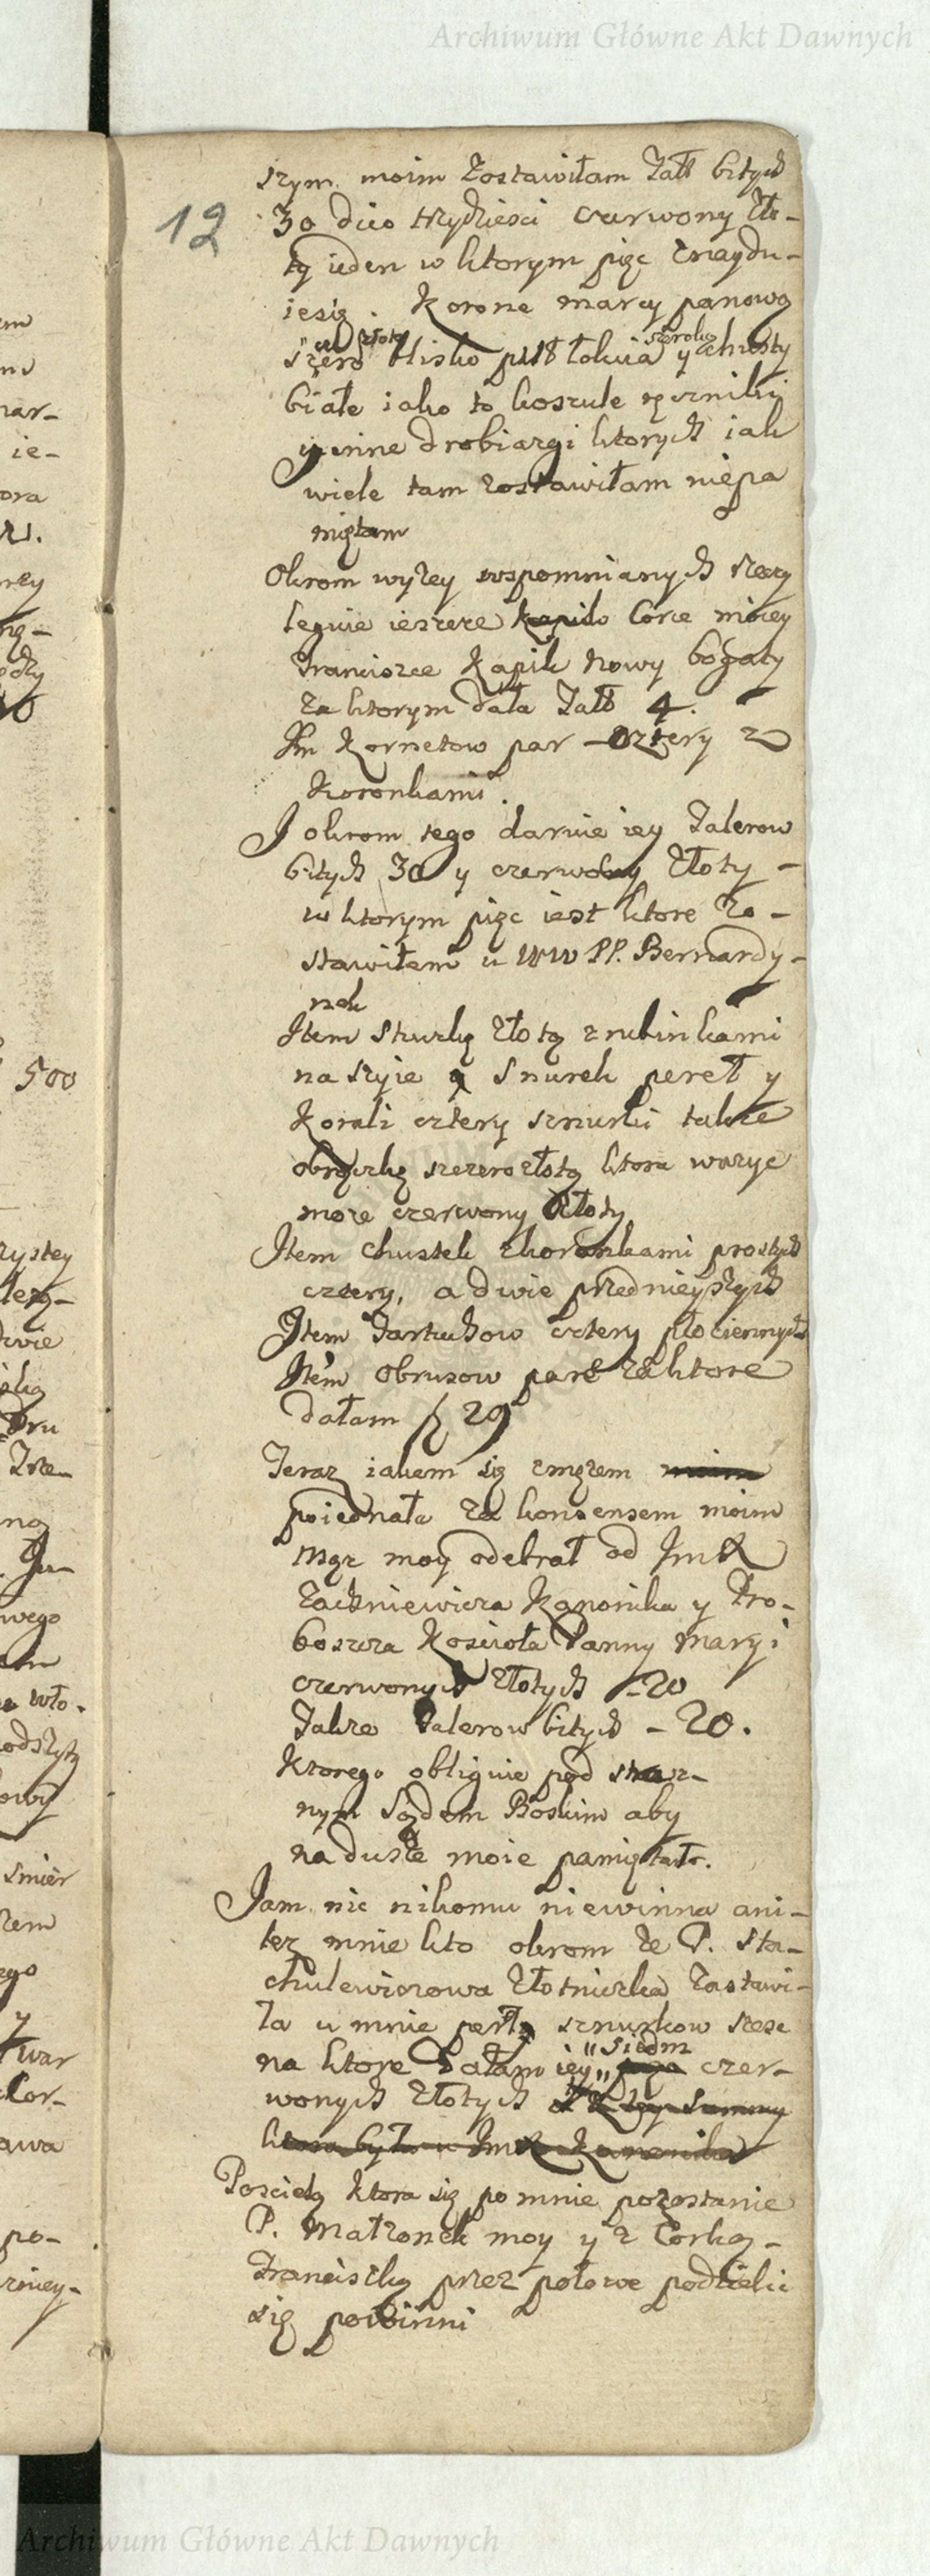 Archiwum Główne Akt Dawnych
szym moim zostawiłam Tall bitych
12
30 dico trzydziesci czerwony Zło-
ty ieden w ktorym pięc znaydu-
iesię. Korone marcypanową
szero złotą blisko puł łokcia szeroką y chusty
białe iako to koszule
y inne drobiazgi ktorych iak
wiele tam zostawiłam niepa
miętam
Okrom wyzey wspomnianych rzeczy
leguie ieszcze Corce moiey
Franciszce Kapik Nowy bogaty
za ktorym dała Tall 4.
Itm Kornetow par cztery z
Koronkami.
I okrom tego daruie iey Talerow
bitych 30 y czerwony Złoty
w ktorym pięc iest ktore zo-
stawiłem u WW PP. Bernardy-
nek
Item sztuczkę złotą z rubinkami
na szyie y snurek pereł y
Korali cztery sznurki takze
obrączkę szczerozłotą ktora wazyc
moze czerwony złoty
Item chustek z koronkami prostych
cztery, a dwie przednieyszych
Item Fartuchow cztery płociennych
Item obrusow pare za ktore
dałam f 29
Teraz iakem się zmęzem moim
poiednała za konsensem moim
mąz moy odebrał od JmX
Zackniewicza Kanonika y Pro-
boszcza Koscioła Panny Maryi
czerwonych Złotych - 20
Takze Talerow bitych - 20.
Ktorego obliguie pod strasz-
nym Sądem Boskim aby
na dusze moie pamiętał.
Jam nic nikomu niewinna ani-
tez mnie kto okrom ze P. Sta-
chulewiczowa Złotniczka zastawi-
ła u mnie perły sznurkow szesc
na ktore dałam iey siedm czer-
wonych złotych z tey summy
ktora była u JmX Kanonika
Posciel ktora się po mnie pozostanie
P. Małzonek moy y z Corką
Franciszką przez połowe podzielic
się powinni
em
nar-
ie-
ora
500
zystey
dwie
Dru
wego
odszły
smier
zem
ego
y
war
Cor-
awa
po-
Archiwum Główne Akt Dawnych